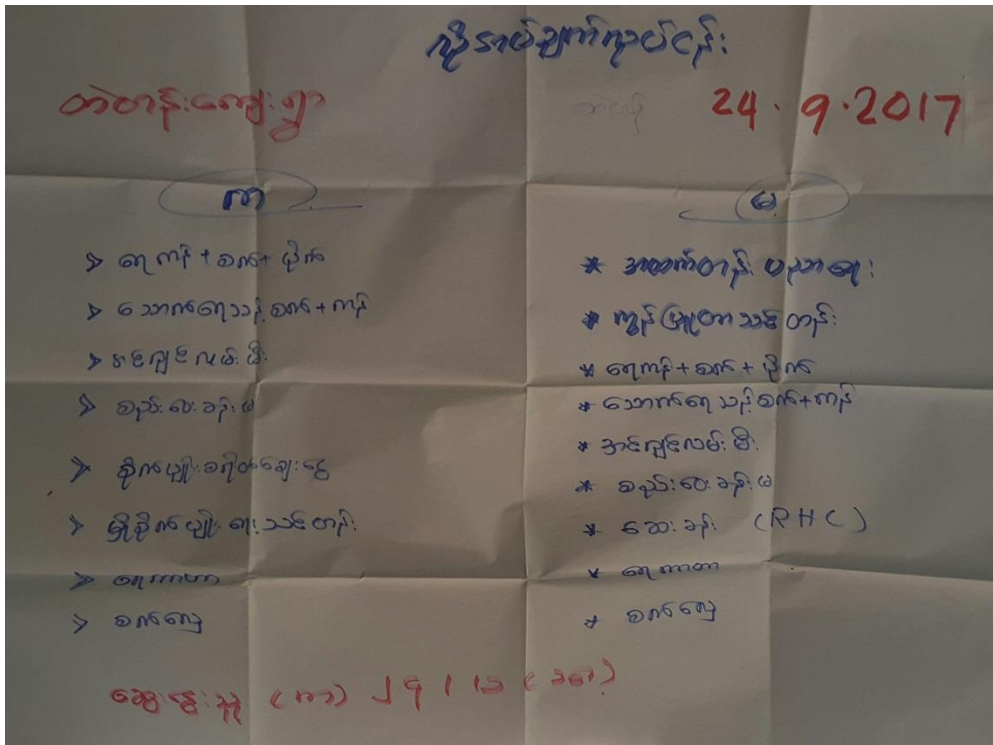 လိုအပ်ချက်လုပ်ငန်း
တဲတန်းကျေးရွာ
24.9.2017
ကျား
➢ ရေကန် + စက် + ပိုက်
➢ သောက်ရေသန့်စက် + ကန်
➢ အင်္ဂလမ်းမီး
➢ စည်းဝေးခန်းမ
➢ စိုက်ပျိုးစရိတ်ချေးငွေ
➢ စိုက်ပျိုးရေးသင်တန်း
➢ ရေကာတာ
➢ စက်လှေ
မ
* အထက်တန်းပညာရေး
* ကွန်ပြူတာသင်တန်း
* ရေကန် + စက် + ပိုက်
* သောက်ရေသန့်စက် + ကန်
* လမ်းမီး
* စည်းဝေးခန်းမ
* ဆေးခန်း (RHC)
* ရေကာတာ
* စက်လှေ
ဆွေးနွေးသူ